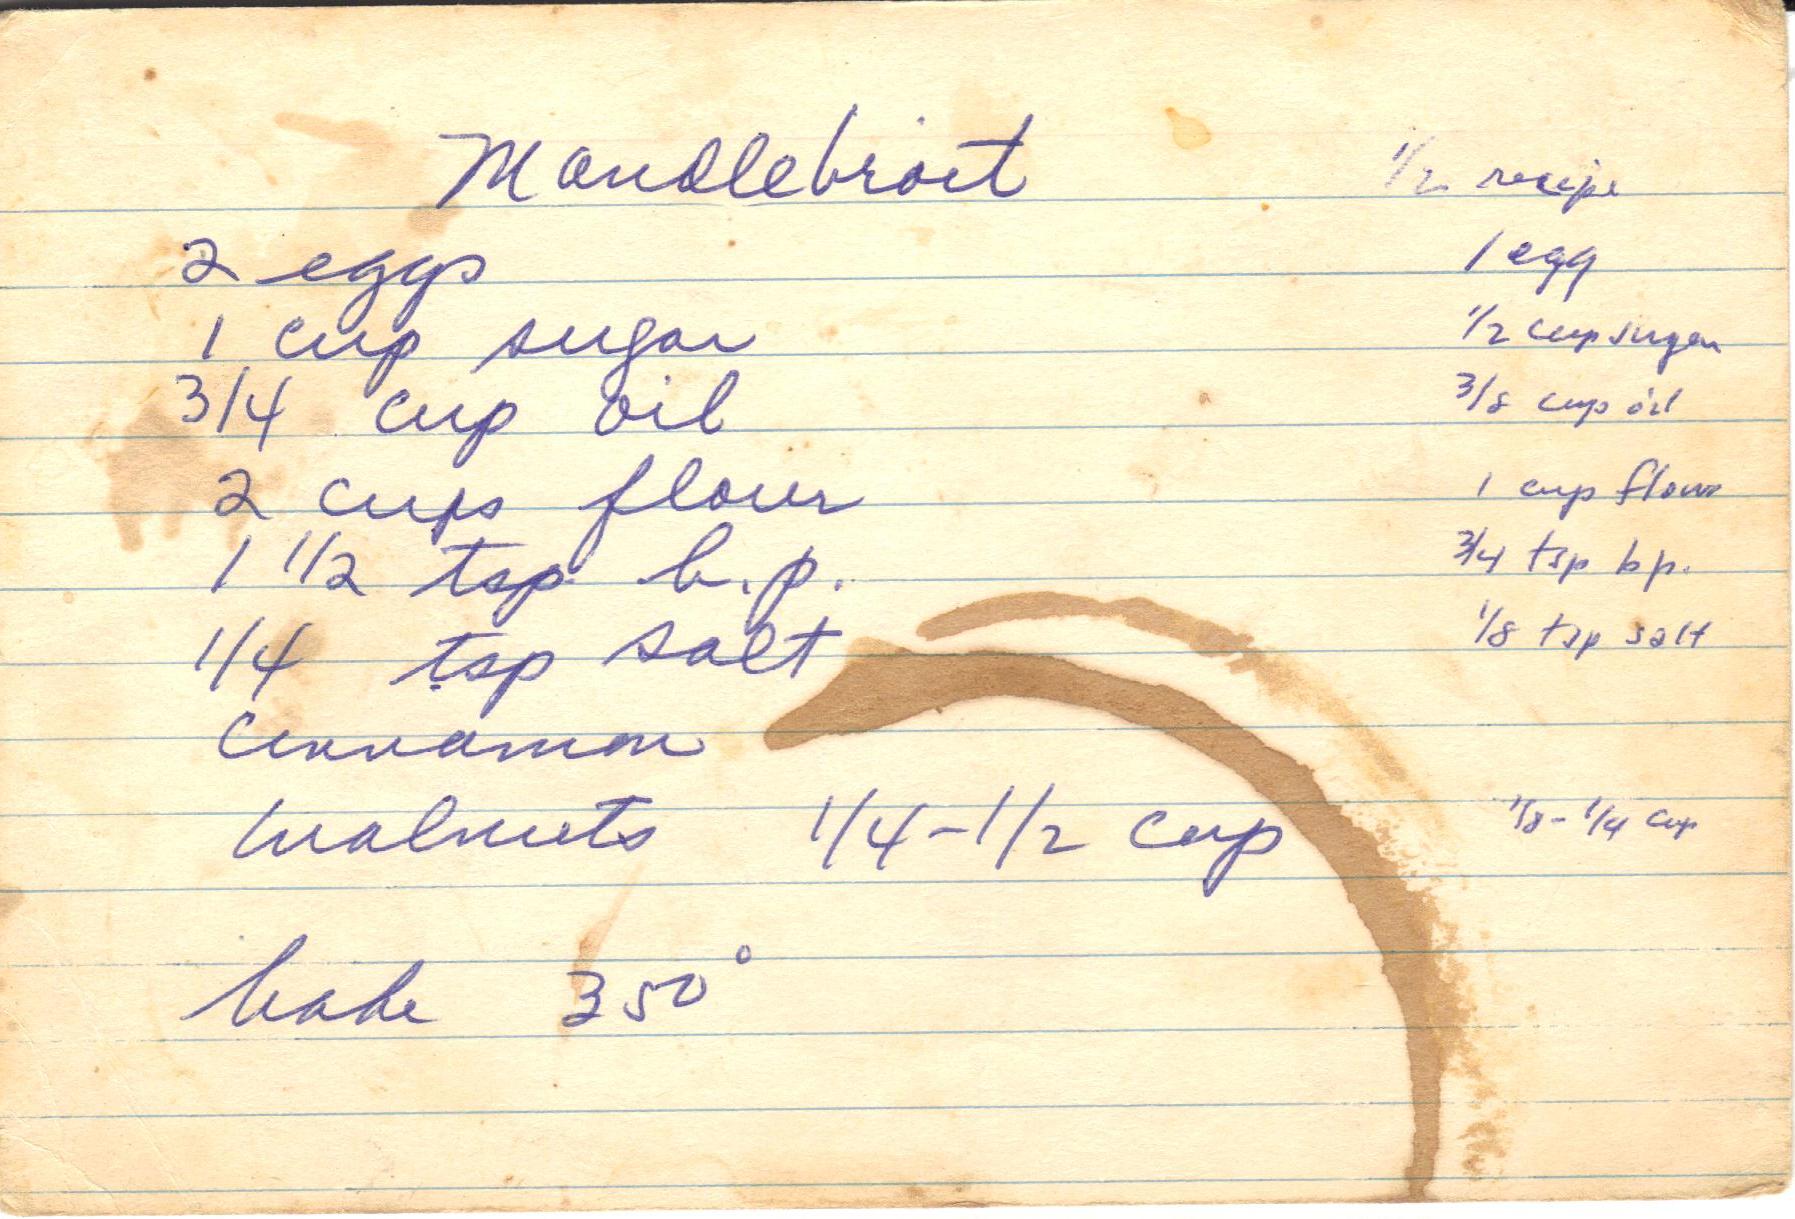 Mandlebroit
1/2 recipe
2 eggs
1 egg
1 cup sugar
1/2 cup sugar
3/4 cup oil
3/8 cup oil
2 cups flour
1 cup flour
1 1/2 tsp b.p.
3/4 tsp bp.
1/4 tsp salt
1/8 tsp salt
Cinnamon
Walnuts 1/4-1/2 cup
1/8-1/4 cup
bake 350°